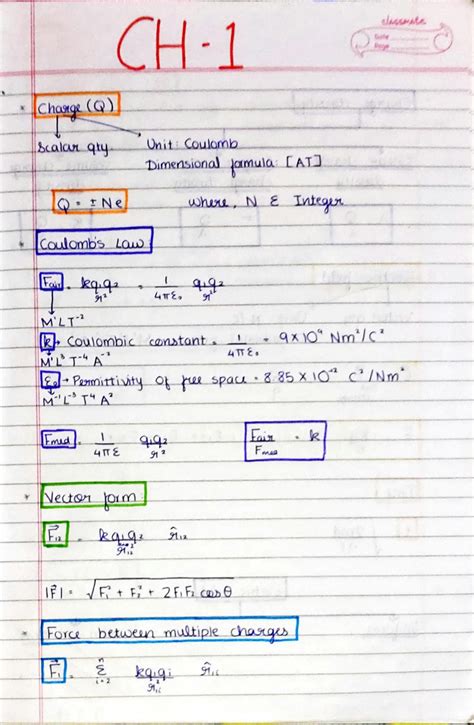 classmate
Date
Page
CH-1
* Charge (Q)
Scalar qty. Unit: Coulomb
Dimensional formula: [AT]
Q = ± Ne where, N ε Integer
* Coulomb's Law
Fair = kq₁q₂/r² = 1/4πε₀ q₁q₂/r²
M¹LT⁻²
k → Coulombic constant = 1/4πε₀ = 9×10⁹ Nm²/C²
M¹L³T⁻⁴A⁻²
ε₀ → Permittivity of free space = 8.85 × 10⁻¹² C²/Nm²
M⁻¹L⁻³T⁴A²
Fmed = 1/4πε q₁q₂/r² Fair/Fmed = k
* Vector form
F⃗₁₂ = kq₁q₂/r₁₂² r̂₁₂
|F⃗| = √F₁² + F₂² + 2F₁F₂ cosθ
* Force between multiple charges
F⃗₁ = ⁿΣᵢ₌₂ kq₁qᵢ/r₁ᵢ² r̂₁ᵢ